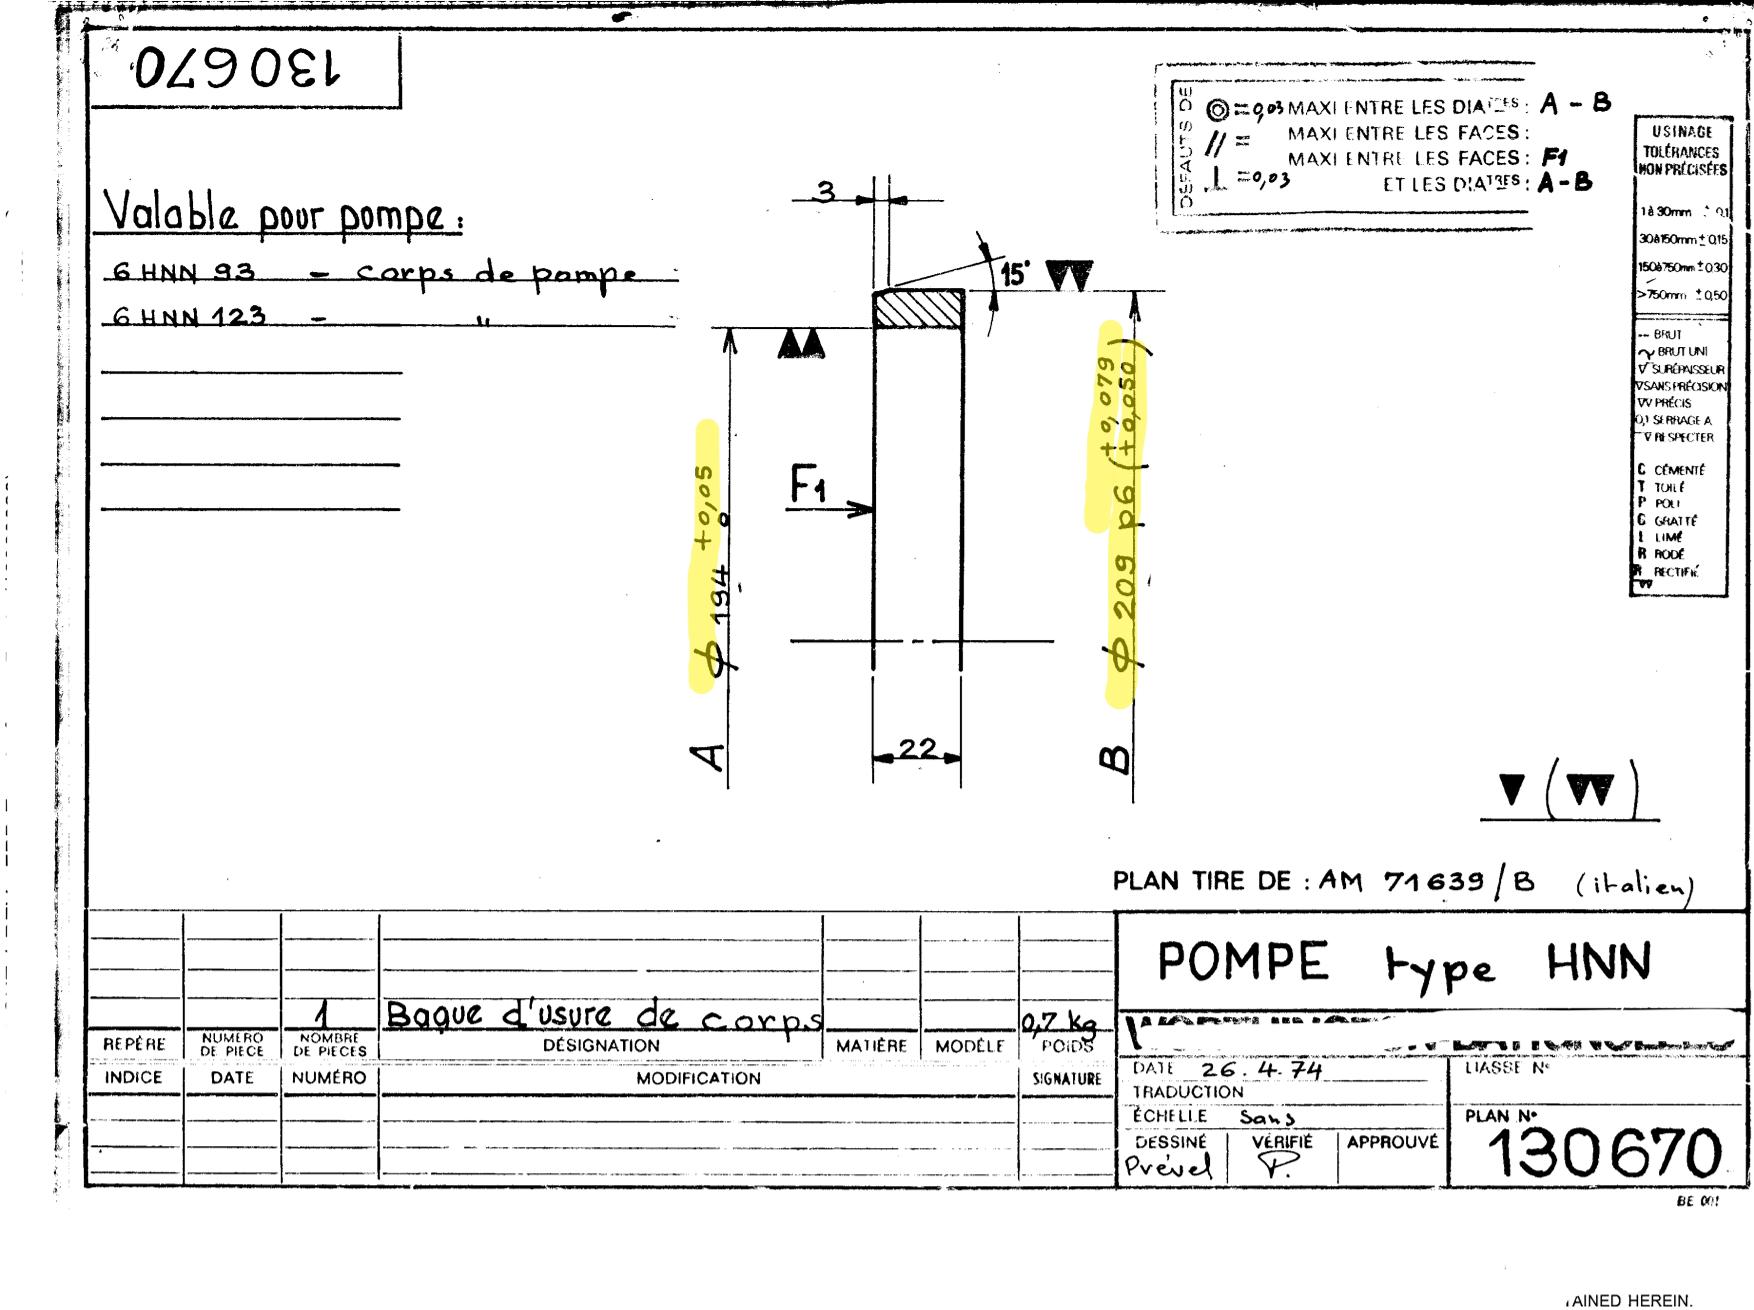 130670
Valable pour pompe :
6 HNN 93 – corps de pompe
6 HNN 123 – "
DEFAUTS DE
◎ = 0,03 MAXI ENTRE LES DIATRES : A - B
// = MAXI ENTRE LES FACES :
MAXI ENTRE LES FACES : F1
⊥ = 0,03 ET LES DIATRES : A - B
USINAGE
TOLÉRANCES
NON PRÉCISÉES
1 à 30mm ± 0,1
30 à 150mm ± 0,15
150 à 750mm ± 0,30
>750mm ± 0,50
-- BRUT
~ BRUT UNI
∇ SURÉPAISSEUR
∇ SANS PRÉCISION
∇∇ PRÉCIS
0,1 SERRAGE A
∇ RESPECTER
C CÉMENTÉ
T TOILÉ
P POLI
G GRATTÉ
L LIMÉ
R RODÉ
R RECTIFIÉ
3
15°
F1
A ϕ 194 +0,05 0
B ϕ 209 p6 (+0,079 +0,050)
22
▼ (▼▼)
PLAN TIRE DE : AM 71639/B (italien)
1 Bague d'usure de corps 0,7 kg
REPÈRE NUMÉRO DE PIECE NOMBRE DE PIECES DÉSIGNATION MATIÈRE MODÈLE POIDS
INDICE DATE NUMÉRO MODIFICATION SIGNATURE
POMPE type HNN
DATE 26.4.74
LIASSE N°
TRADUCTION
ÉCHELLE Sans
DESSINÉ VÉRIFIÉ APPROUVÉ
Prével P.
PLAN N°
130670
BE 001
AINED HEREIN.